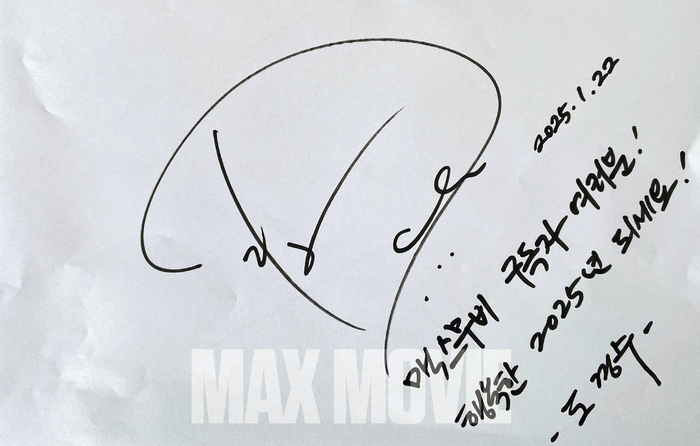 2025.1.22
맥스무비 구독자 여러분!
행복한 2025년 되세요!
- 도경수 -
MAX MOVIE